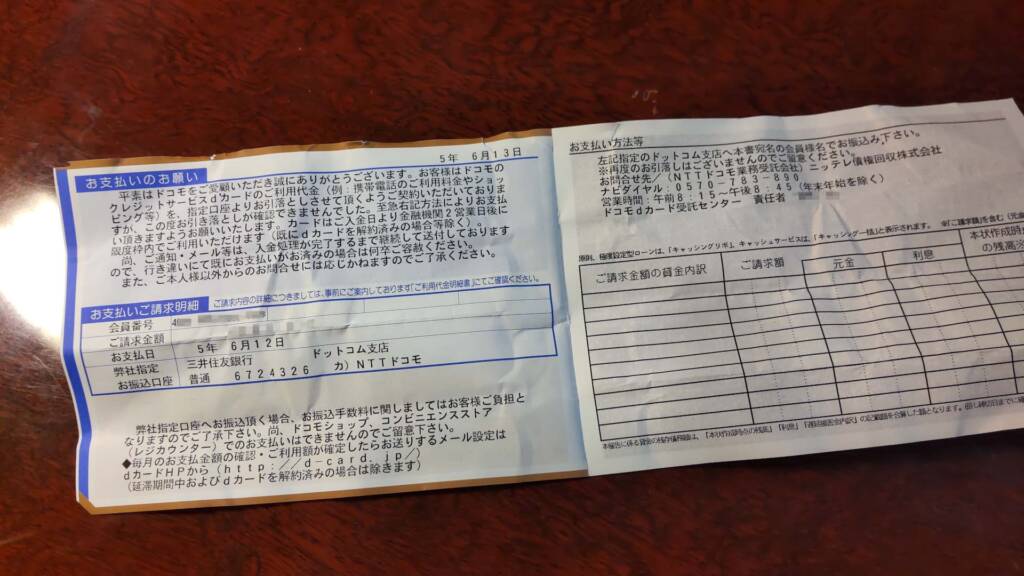 5年 6月13日
お支払いのお願い
平素はドコモをご愛顧いただき誠にありがとうございます。お客様はドコモの
クレジットサービスdカードのご利用代金(例:携帯電話のご利用料金やショッ
ピング等)を、指定口座よりお引落としさせて頂く方法によりお支払いいただいております
すが、この度お引き落としが確認できませんでした。至急右記方法にてお支払
い頂きますようお願いいたします。カードはご入金日より金融機関2営業日後に
限度枠内でご利用いただけます(既にdカードを解約済みの場合等除く)。
尚、ご通知・メール等は、入金処理が完了するまで継続して送付しております
ので、行き違いにて既にお支払いがお済みの場合は何卒ご容赦ください。
また、ご本人様以外からのお問合せには応じかねますのでご了承ください。
お支払いご請求明細 ご請求内容の詳細につきましては、事前にご案内しております「ご利用代金明細書」にてご確認ください。
会員番号 4
ご請求金額
お支払日 5年 6月12日
弊社指定 三井住友銀行 ドットコム支店
お振込口座 普通 6724326 カ)NTTドコモ
弊社指定口座へお振込頂く場合、お振込手数料に関しましてはお客様ご負担と
なりますのでご了承下さい。尚、ドコモショップ、コンビニエンスストア
(レジカウンター)でのお支払いはできませんのでご留意下さい。
◆毎月のお支払金額の確認・ご利用額が確定した時にお送りするメール設定は
dカードHPから(http://d-card.jp/)
(延滞期間中およびdカードを解約済みの場合は除きます)
お支払方法等
左記指定のドットコム支店へ本書宛名の会員様名でお振込み下さい。
※再度のお引落しはございませんのでご留意ください。
お問合せ先(NTTドコモ業務受託会社)ニッテレ債権回収株式会社
ナビダイヤル:0570-783-890
営業時間:午前8:15~午後8:45(年末年始を除く)
ドコモdカード受託センター 責任者
原則、極度設定型ローンは、「キャッシングリボ」、キャッシュサービスは、「キャッシング一括」と表示されます。 ※「ご請求額」を含む(元金
ご請求金額の貸金内訳 ご請求額 元金 利息 本状作成時点の残高